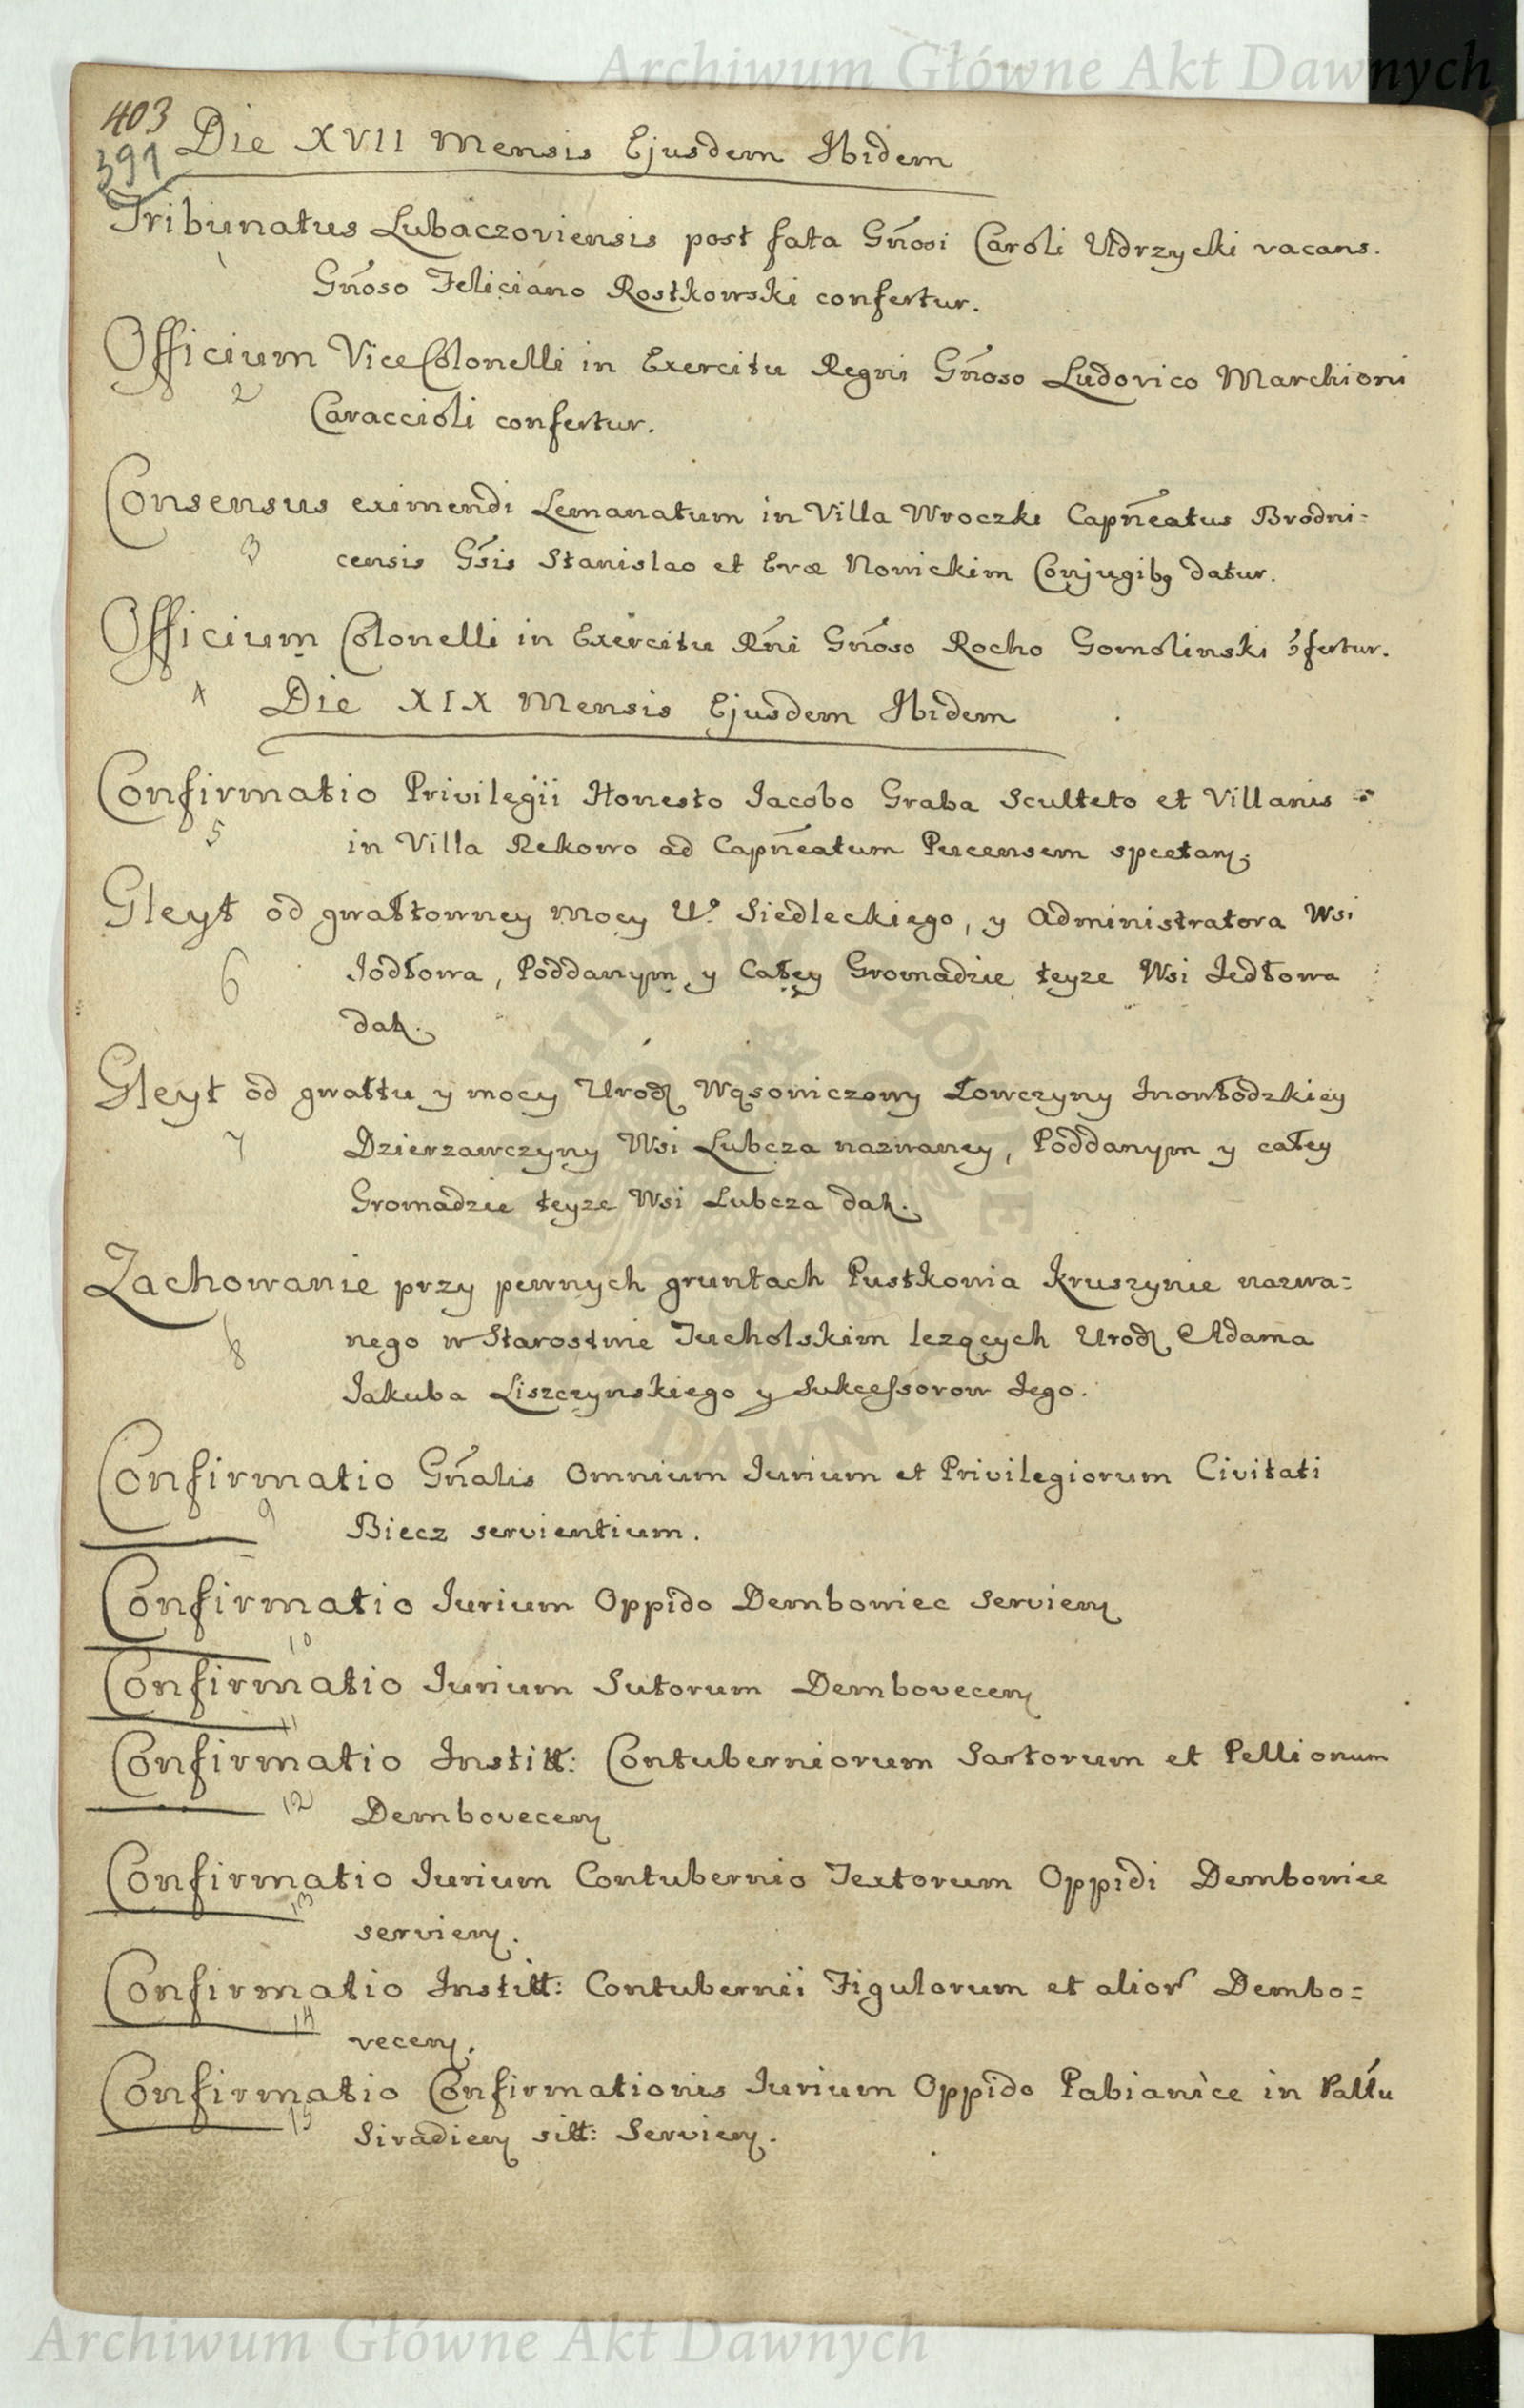 Archiwum Główne Akt Dawnych
403
391
Die XVII Mensis Ejusdem Ibidem
Tribunatus Lubaczoviensis post fata Gn̄osi Caroli Udrzycki vacans.
1
Gn̄oso Feliciano Rostkowski confertur.
Officium ViceColonelli in Exercitu Regni Gn̄oso Ludovico Marchioni
2
Caraccioli confertur.
Consensus eximendi Lemanatum in Villa Wroczki Capn̄eatus Brodni=
3
censis Gśis Stanislao et Evæ Nowickim Conjugibq datur.
Officium Colonelli in Exercitu Rn̄i Gn̄oso Rocho Gomolinski ɔfertur.
4
Die XIX Mensis Ejusdem Ibidem
Confirmatio Privilegii Honesto Jacobo Graba Sculteto et Villanis
5
in Villa Rekowo ad Capn̄eatum Pucensem spectan̄.
Gleyt od gwałtowney Mocy U. Siedleckiego, y Administratora Wsi
6
Jodłowa, Poddanym y Całey Gromadzie teyze Wsi Jedłowa
dan̄.
Gleyt od gwałtu y mocy Urodz Wąsowiczowy Łowczyny Inowłodzkiey
7
Dzierzawczyny Wsi Lubcza nazwaney, Poddanym y całey
Gromadzie teyze Wsi Lubcza dan̄.
Zachowanie przy pewnych gruntach Pustkowia Kruszynie nazwa=
8
nego w Starostwie Tucholskim lezących Urodz Adama
Jakuba Liszczynskiego y Sukcessorow Jego.
Confirmatio Gn̄alis Omnium Iurium et Privilegiorum Civitati
9
Biecz servientium.
Confirmatio Iurium Oppido Dembowiec Servien̄
10
Confirmatio Iurium Sutorum Dembovecen̄
11
Confirmatio Institt: Contuberniorum Sartorum et Pellionum
12
Dembovecen̄
Confirmatio Iurium Contubernio Textorum Oppidi Dembowiec
13
servien̄.
Confirmatio Institt: Contubernii Figulorum et alior Dembo=
14
vecen̄.
Confirmatio Confirmationis Iurium Oppido Pabianice in Pallu
15
Siradien̄ sitt: Servien̄.
Archiwum Główne Akt Dawnych